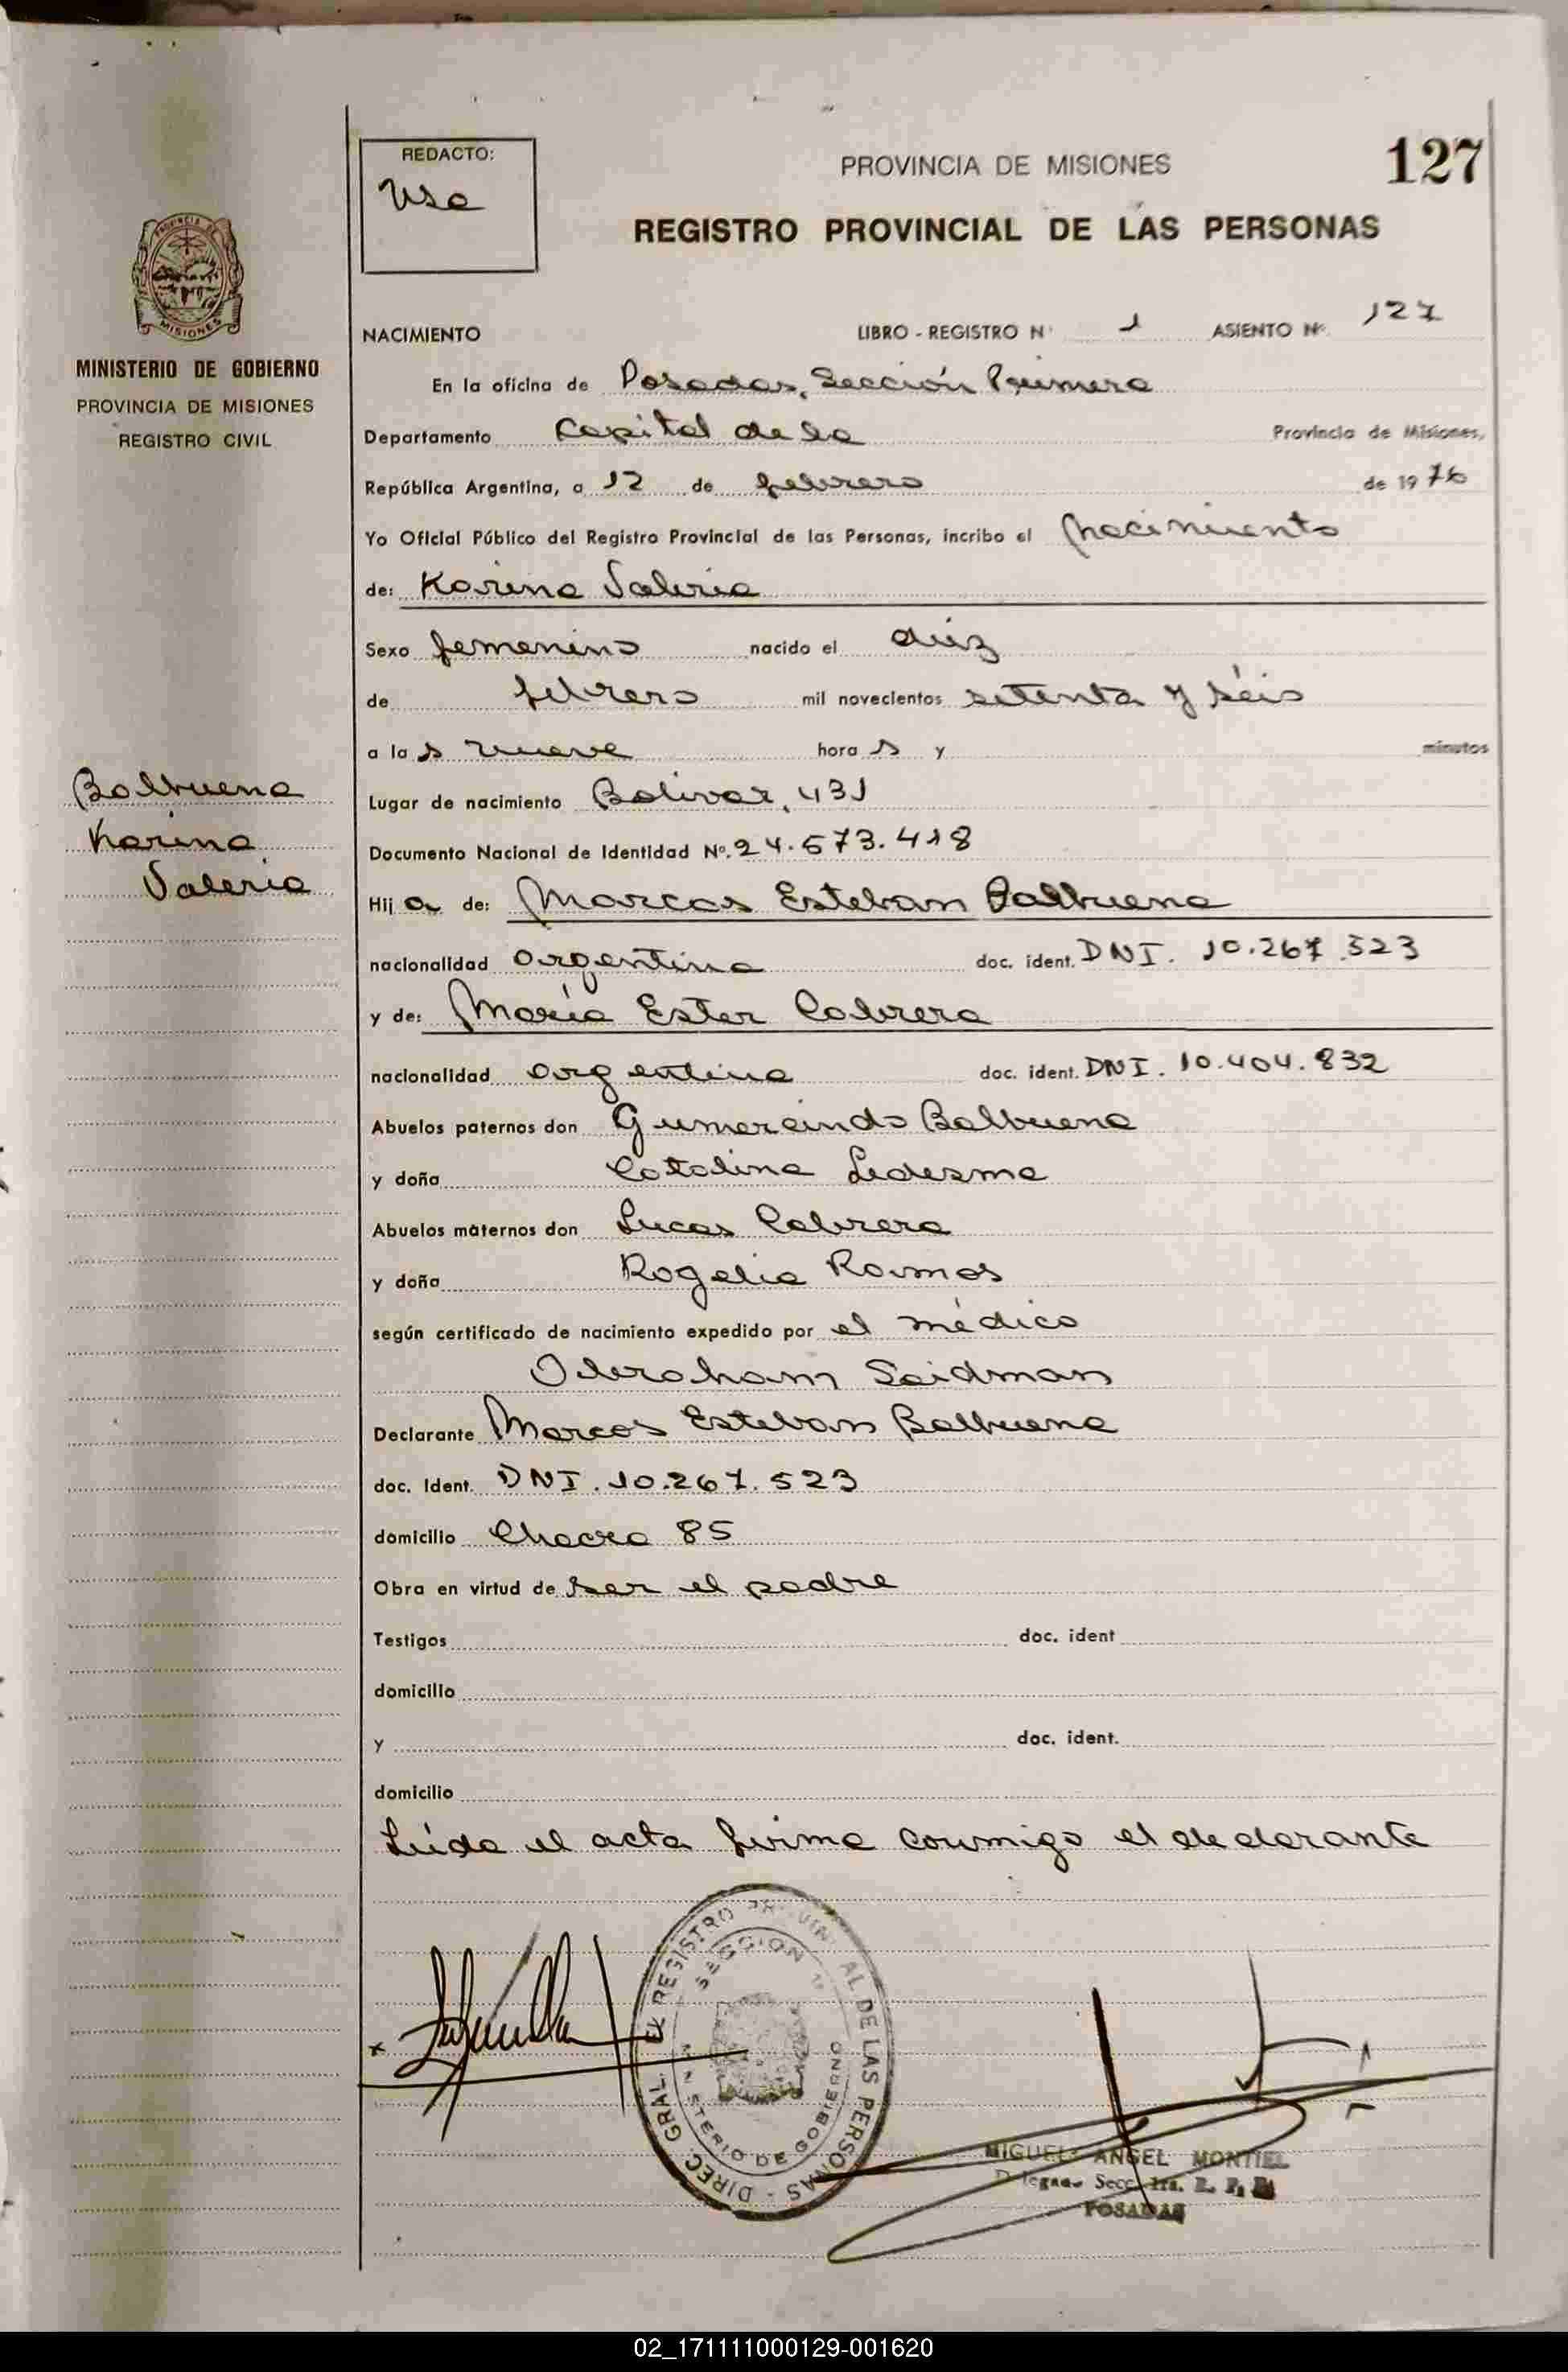 REDACTO:
PROVINCIA DE MISIONES
127
REGISTRO PROVINCIAL DE LAS PERSONAS
MISIONES
MINISTERIO DE GOBIERNO
PROVINCIA DE MISIONES
REGISTRO CIVIL
NACIMIENTO LIBRO - REGISTRO Nº 1 ASIENTO Nº 127
En la oficina de Posadas, Sección Primera
Departamento Capital de la Provincia de Misiones,
República Argentina, a 12 de febrero de 1976
Yo Oficial Público del Registro Provincial de las Personas, incribo el Nacimiento
de: Karina Valeria
Sexo femenino nacido el diéz
de febrero mil novecientos setenta y séis
a la s nueve hora s y minutos
Balbuena
Karina
Valeria
Lugar de nacimiento Bolivar, 431
Documento Nacional de Identidad Nº. 24.573.418
Hij a de: Marcos Esteban Balbuena
nacionalidad argentina doc. ident. DNI. 10.267.523
y de: María Ester Cabrera
nacionalidad argentina doc. ident. DNI. 10.404.832
Abuelos paternos don Gumercindo Balbuena
y doña Catalina Ledesma
Abuelos maternos don Lucas Cabrera
y doña Rogelia Ramos
según certificado de nacimiento expedido por el médico
Abraham Saidman
Declarante Marcos Esteban Balbuena
doc. Ident. DNI. 10.267.523
domicilio Chacra 85
Obra en virtud de ser el padre
Testigos doc. ident
domicilio
y doc. ident.
domicilio
Leída el acta firma conmigo el declarante
DIREC. GRAL. REGISTRO PROVINCIAL DE LAS PERSONAS
SECCION 1ª
MINISTERIO DE GOBIERNO
MIGUEL ANGEL MONTIEL
Delegado Secc. 1ra. R. P.
POSADAS
02_171111000129-001620